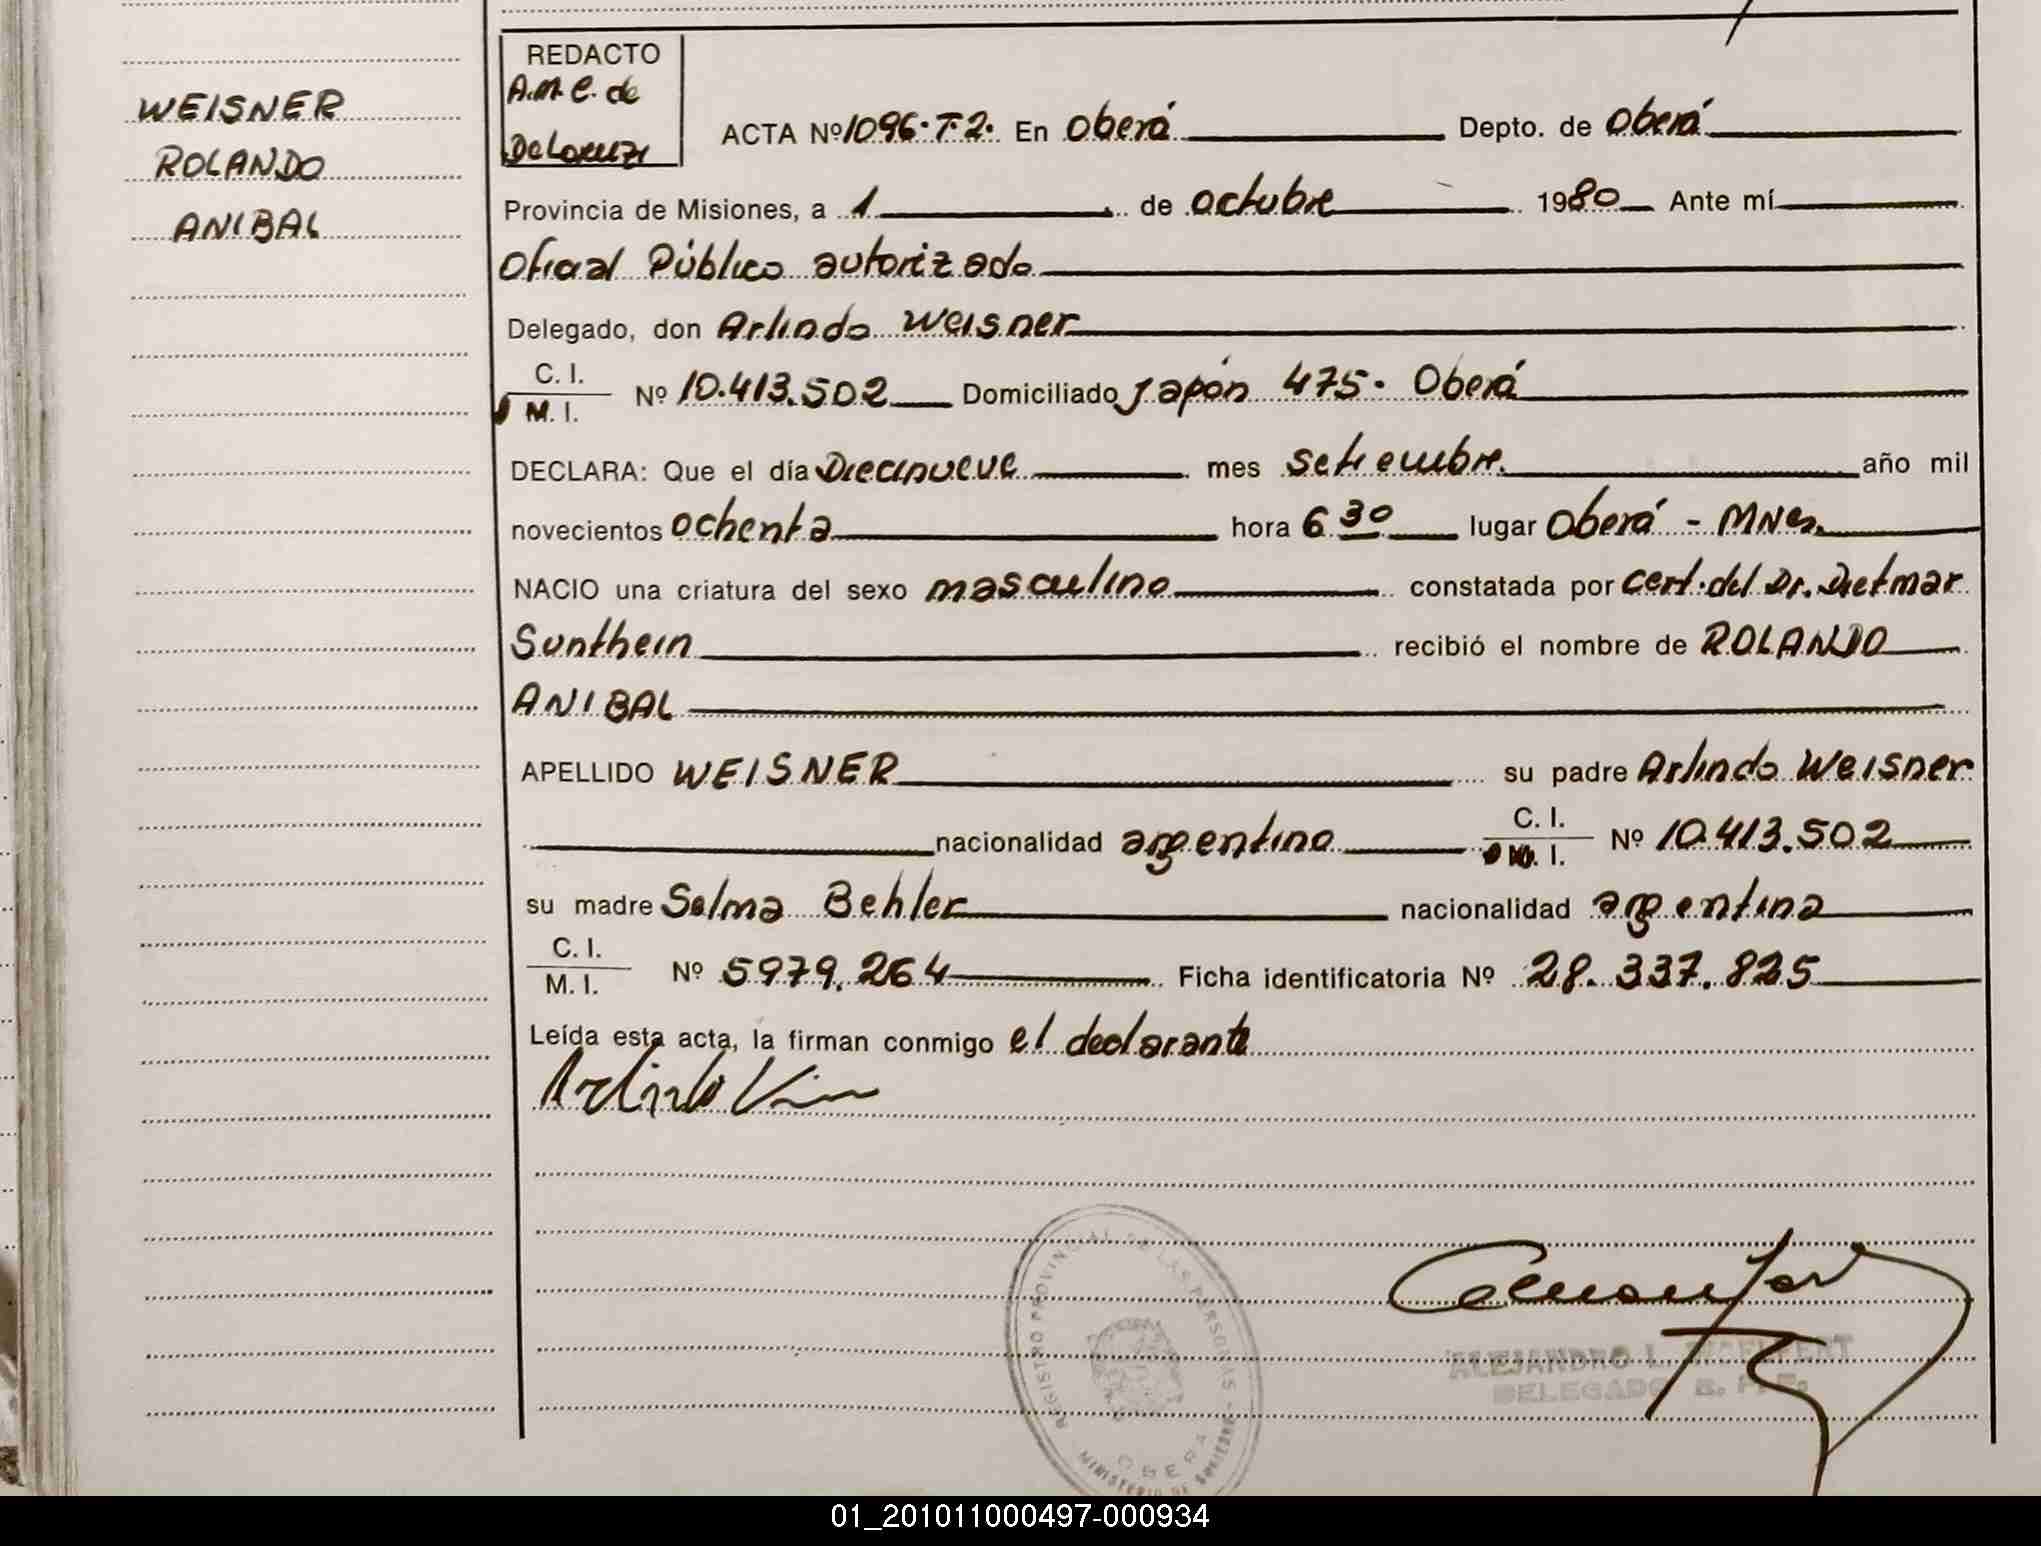 WEISNER
ROLANDO
ANIBAL
REDACTO
A.M.C. de
DeLorenzi
ACTA Nº 1096.T.2. En Oberá Depto. de Oberá
Provincia de Misiones, a 1 de octubre 1980 Ante mí
Oficial Público autorizado
Delegado, don Arlindo Weisner
C. I.
M. I. Nº 10.413.502 Domiciliado Japón 475. Oberá
DECLARA: Que el día Diecinueve mes setiembre año mil
novecientos ochenta hora 6 30 lugar Oberá - Mnes.
NACIO una criatura del sexo masculino constatada por cert. del Dr. Dietmar
Sunthein recibió el nombre de ROLANDO
ANIBAL
APELLIDO WEISNER su padre Arlindo Weisner
nacionalidad argentina C. I.
M. I. Nº 10.413.502
su madre Selma Behler nacionalidad argentina
C. I.
M. I. Nº 5979.264 Ficha identificatoria Nº 28.337.825
Leída esta acta, la firman conmigo el declarante
REGISTRO PROVINCIAL DE LAS PERSONAS
OBERA
MINISTERIO DE GOBIERNO
ALEJANDRO L.
DELEGADO
01_201011000497-000934